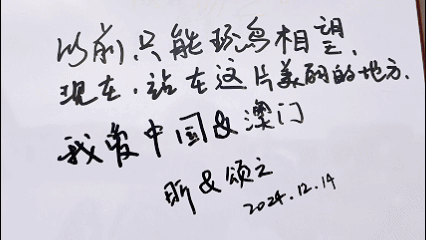 以前只能珍鸟相望,
现在,站在这片美丽的地方.
我爱中国&澳门
昕&颂之
2024.12.14